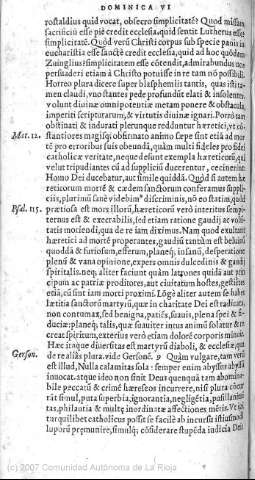 DOMINICA VI
rostaldius quid vocat, obsecro simplicitatē? Quod missam
sacrificiū esse piè credit ecclesia, quid sentit Lutherus esse
simplicitatē. Quòd verū Christi corpus sub specie panis in
eucharistia esse sanctè credit ecclesia, quid ad hoc quòdam
Zuinglius simplicitatem esse cōtendit, admirabundus
persuaderi etiam à Christo potuisse in re tam nō possibili.
Horreo plura dicere super blasphemiis tantis, quas ist
men claudi, vno stantes pede profundūt elati & insolenter,
volunt divinæ omnipotentiæ metam ponere & obstacula,
imperiti scripturarum, & virtutis divinæ ignari. Porrò tam
obstinati & indurati plerunque redduntur hæretici, vt cō
Mat. 12. stantiores magisq; obfirmato animo sæpe sint etiā ad mor
tē pro erroribus suis obeundā, quàm multi fideles pro fidei
catholicæ veritate, neque desunt exempla hæreticorū, qui
velut tripudiantes cū ad suppliciū ducerentur, cecinerint
Homo Dei ducebatur, aut simile quiddā. Quòd si autem hæ
reticorum mortē & cædem sanctorum conferamus suppli
ciis, plurimū sanè videbim9 discriminis, nō eo statim, quòd
Psal. 115. prætiosa est mors illorū, hæreticorū verò interitus semp
ternus est & execrabilis, sed etiam ratione gaudij ac volū
tatis moriendi, qua de re iam diximus. Nam quod exultant
hæretici ad mortē properantes, gaudiū tantùm est beluinū
quoddā & furiosum, efferum, planeq; insanū, desperatione
plenū & vana opinione, expers omnis dulcedinis & gaudij
spiritalis. neq; aliter faciunt quàm latrones quidā aut prin
cipum ac patriæ proditores, aut civitatum hostes, gestientes
etiā, cū sint iam morti proximi. Lōgè aliter autem se habet
lætitia sanctorū martyrū, quæ in charitate Dei est radicata,
non contumax, sed benigna, patiēs, suavis, plena spei & fi
duciæ planeq; talis, quæ suaviter intus animū soletur & re
creet spiritum, exterius verò etiam dolorē corporis minuis
Hæc itaque diversitas est martyrū diaboli, & ecclesiæ, qua
Gerson. de re aliàs plura. vide Gersonē. Quàm vulgare, tam verū
est illud, Nulla calamitas sola: semper enim abyssus abyssū
invocat. atque ideo non sinit Deus quenquā tam abomina
bile peccatū & crimē hæreseos incurrere, nisi plura cōcur
rāt simul, puta superbia, ignorantia, negligētia, pusillanimi
tas, philautia & multę inordinatæ affectiones mētis. Ve
tar quilibet catholicus posset se facilè ab incursu istiusmodi
luporū præmunire, simulq; cōsiderare stupēda iudicia Dei
(c) 2007 Comunidad Autónoma de La Rioja